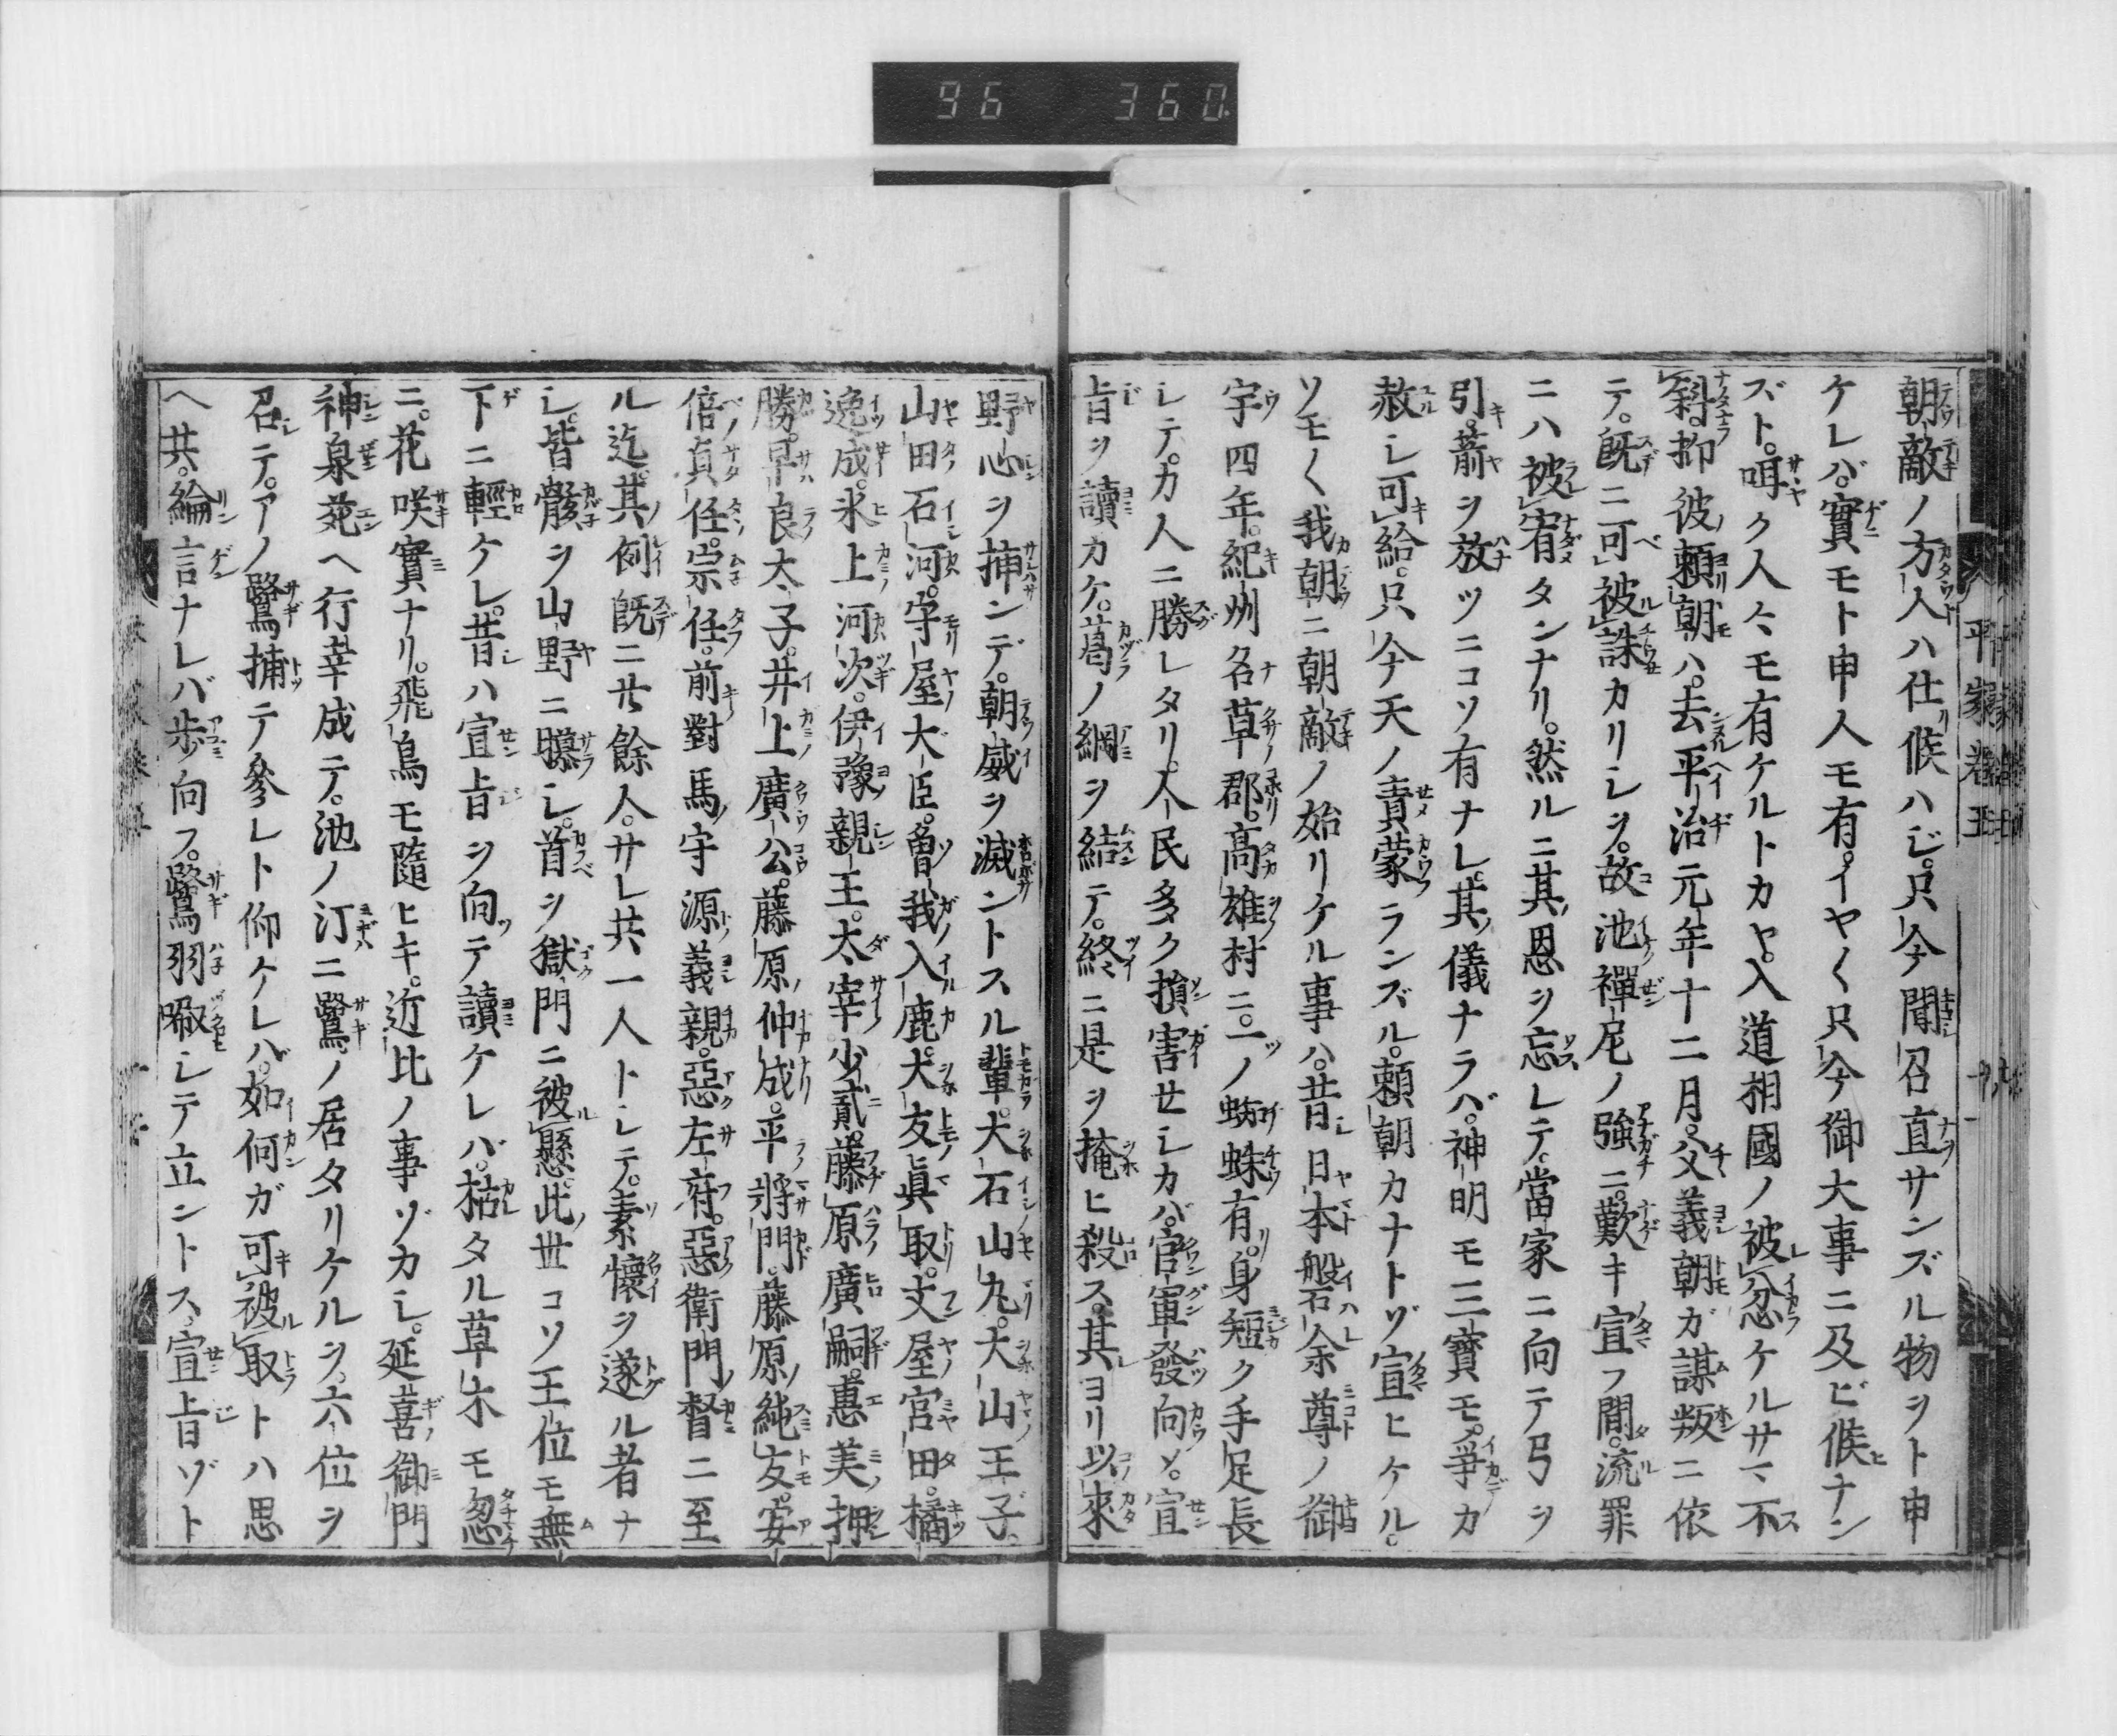 96 360
平家卷五
朝敵ノ方人ハ仕候ハジ。只今聞召直サンズル物ヲト申
ケレバ。實モト申人モ有。イヤ〱只今御大事ニ及ビ候ナン
ズト。咡ク人々モ有ケルトカヤ。入道相國ノ被忿ケルサマ不
斜。抑彼頼朝ハ。去平治元年十二月。父義朝ガ謀叛ニ依
テ。既ニ可被誅カリシヲ。故池禪尼ノ強ニ歎キ宣フ間。流罪
ニハ被宥タンナリ。然ルニ其恩ヲ忘レテ當家ニ向テ弓ヲ
引。箭ヲ放ツニコソ有ナレ。其儀ナラバ。神明モ三寶モ。爭カ
赦シ可給。只今天ノ責蒙ランズル。頼朝カナトゾ宣ヒケル。
ソモ〱我朝ニ朝敵ノ始リケル事ハ。昔日本般石余尊ノ御
宇四年。紀州名草郡。高雄村ニ。一ノ蜘蛛有。身短ク手足長
シテ。力人ニ勝レタリ。人民多ク損害セシカバ。官軍發向メ。宣
旨ヲ讀カケ。葛ノ網ヲ結テ。終ニ是ヲ掩ヒ殺ス。其ヨリ以來
野心ヲ挿ンデ。朝威ヲ滅ントスル輩。大石山丸。大山王子。
山田石河。守屋大臣。曾我入鹿。大友眞取。文屋宮田。橘
逸成。氷上河次。伊豫親王。太宰少貳。藤原廣嗣。惠美押
勝。早良太子。井上廣公。藤原仲成。平將門。藤原純友。安
倍貞任。宗任。前對馬守源義親。惡左府。惡衛門督ニ至
ル迄。其例既ニ廿餘人。サレ共一人トシテ。素懷ヲ遂ル者ナ
シ。皆骸ヲ山野ニ曝シ。首ヲ獄門ニ被懸。此世コソ王位モ無
下ニ輕ケレ。昔ハ宣旨ヲ向テ讀ケレバ。枯タル草木モ忽
ニ。花咲實ナリ。飛鳥モ隨ヒキ。近比ノ事ゾカシ。延喜御門
神泉苑ヘ行幸成テ。池ノ汀ニ鷺ノ居タリケルヲ。六位ヲ
召テ。アノ鷺捕テ參レト仰ケレバ。如何ガ可被取トハ思
ヘ共。綸言ナレバ歩向フ。鷺羽㗚シテ立ントス。宣旨ゾト